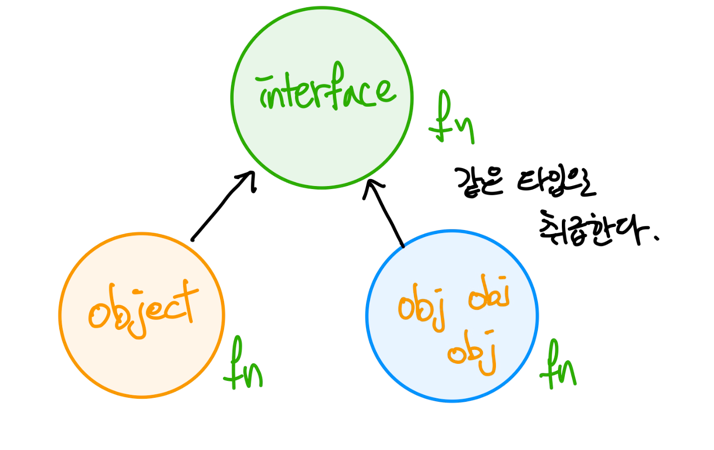 interface
fn
같은 타입으로
취급한다.
object
fn
obj obj
obj
fn